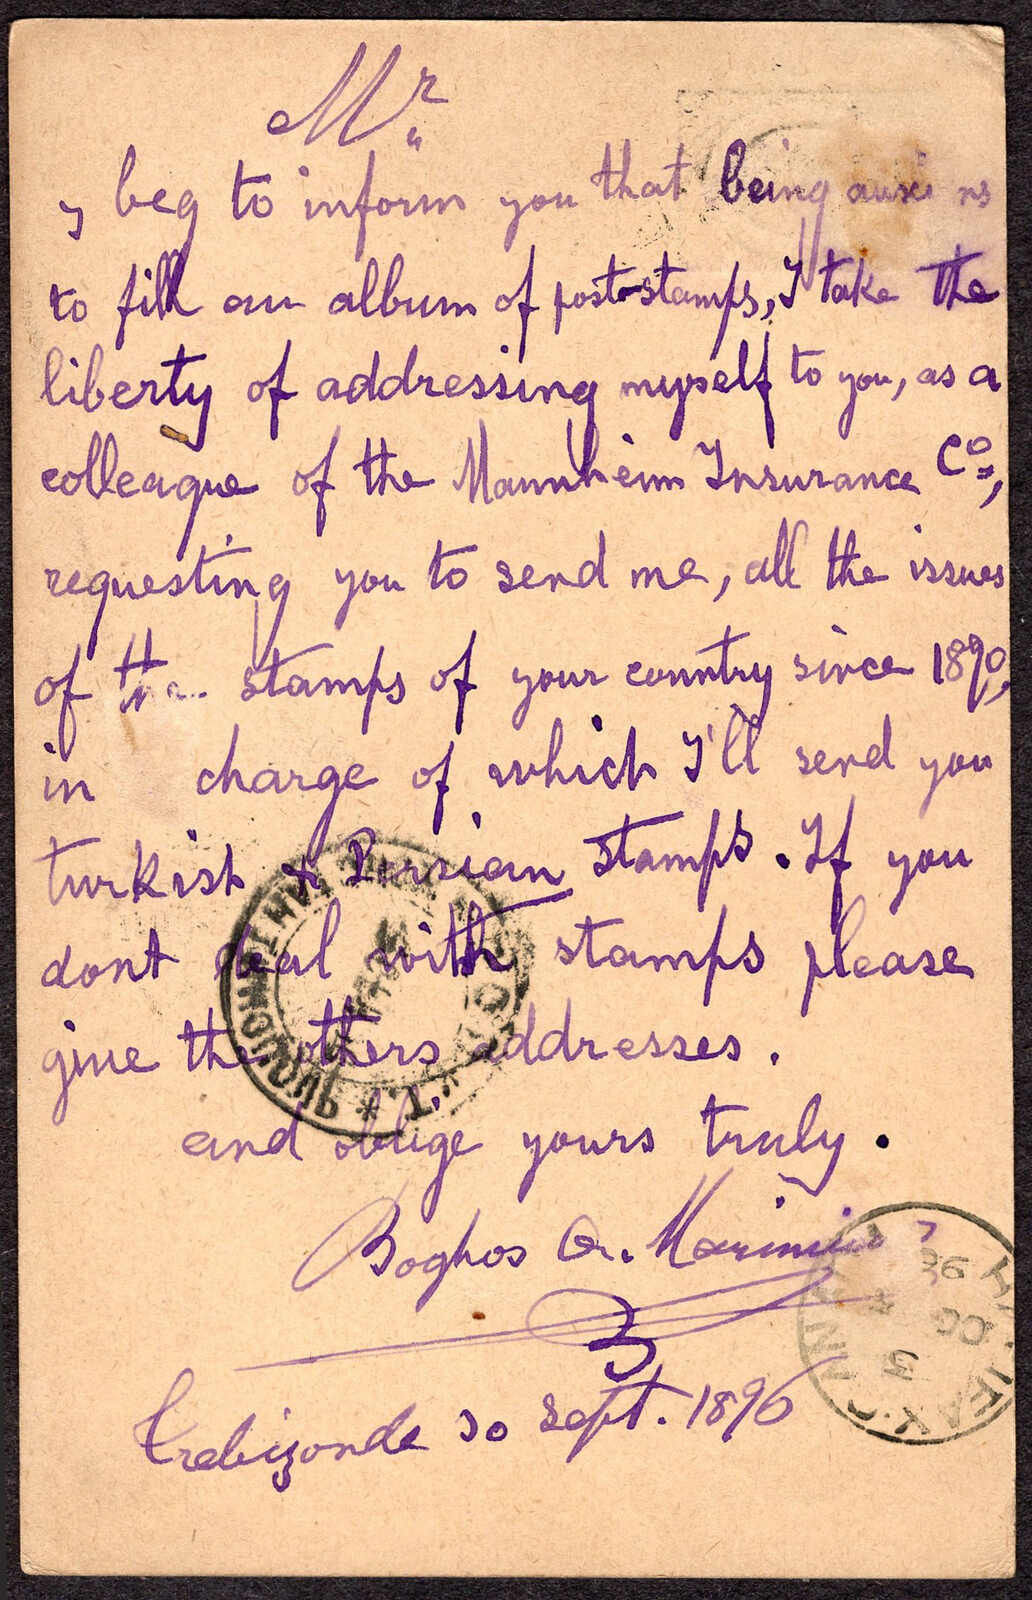 Mr
I beg to inform you that being
to fill an album of post-stamps, I take the
liberty of addressing myself to you, as a
colleague of the Mannheim Insurance Co,
requesting you to send me, all the issues
of the stamps of your country since 1890,
in charge of which I'll send you
turkish & Persian stamps. If you
dont deal with stamps please
give the others addresses.
and oblige yours truly.
Boghos
Trebizonde 30 Sept. 1896